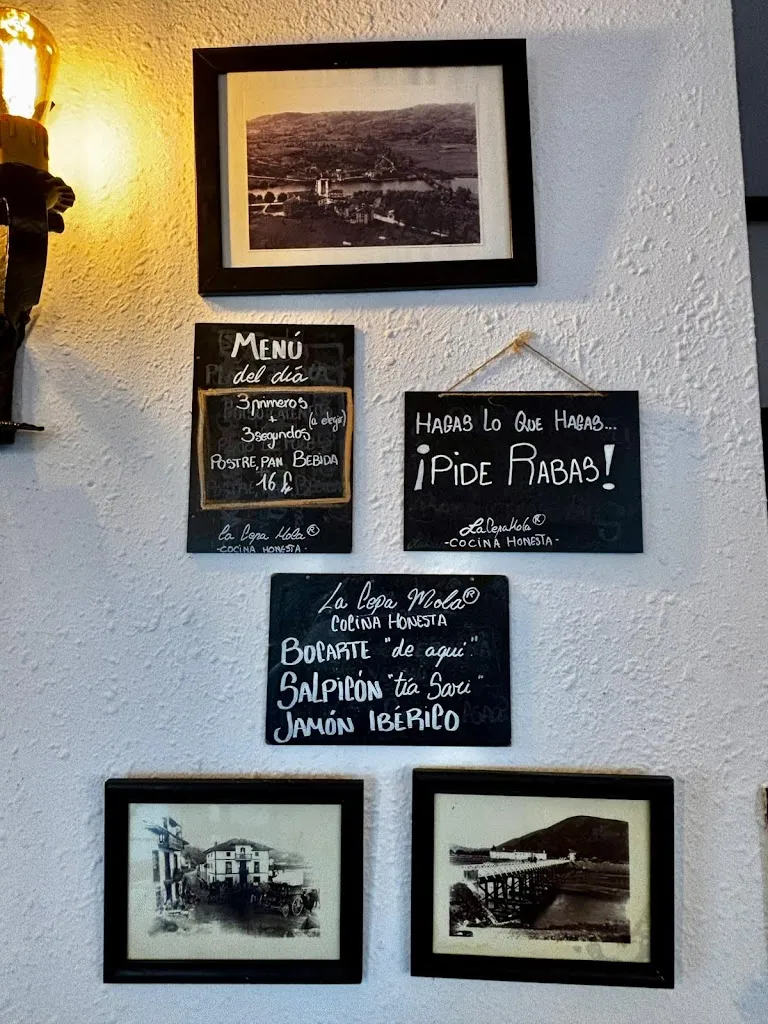 MENÚ
del día
3 primeros
+ (a elegir)
3 segundos
POSTRE, PAN BEBIDA
16 £
La Cepa Mola®
-COCINA HONESTA-
HAGAS LO QUE HAGAS...
¡PIDE RABAS!
La Cepa Mola®
-COCINA HONESTA-
La Cepa Mola®
COCINA HONESTA
BOCARTE "de aquí"
SALPICÓN "tía Sari"
JAMÓN IBÉRICO